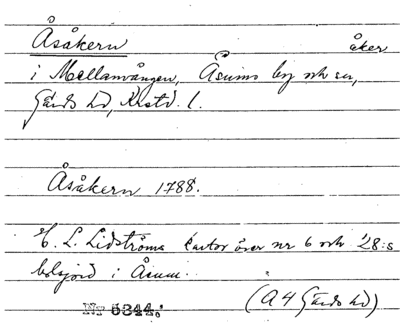 Åsåkern åker
i Mellanvången, Åsums by och sn,
Gärds hd, Kristd. l.
Åsåkern 1788.
C. L. Lidströms kartor över nr 6 och 28:s
bolsjord i Åsum.
Nr 5344.
(A4 Gärds hd)